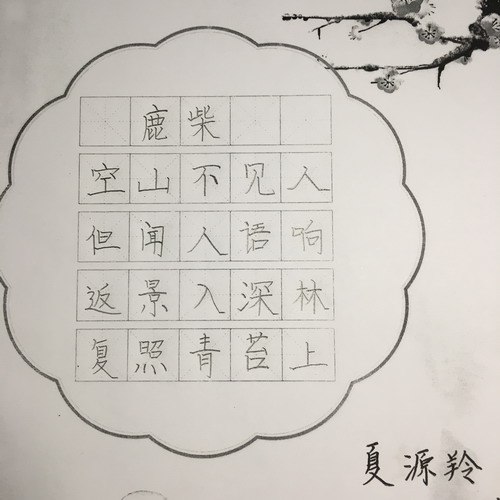 鹿柴
空山不见人
但闻人语响
返景入深林
复照青苔上
夏源羚